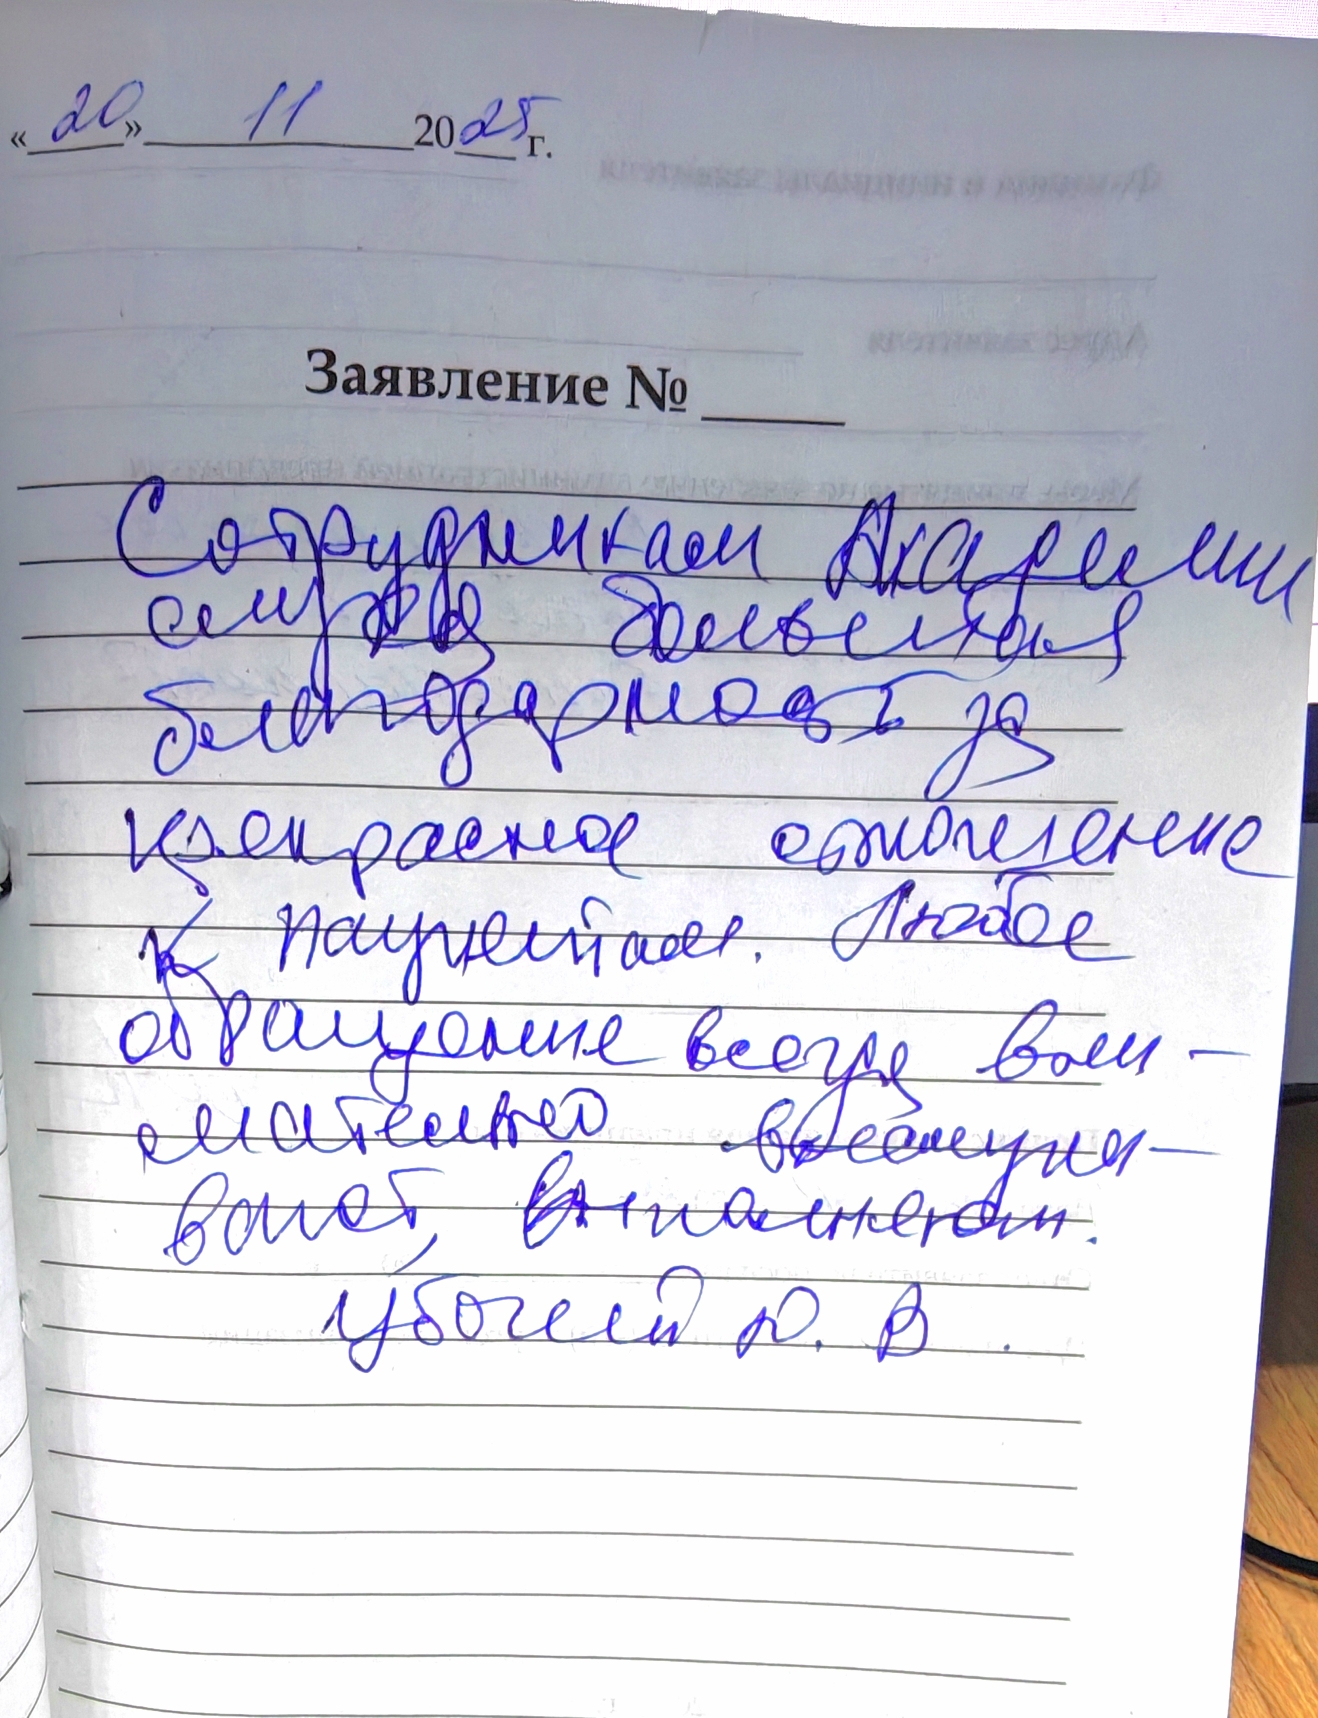 «20» 11 2025 г.
Заявление №
Сотрудникам Академии
слуха большая
благодарность за
прекрасное отношение
к пациентам. Любое
обращение всегда вни-
мательно выслуши-
вают,
Д. В.